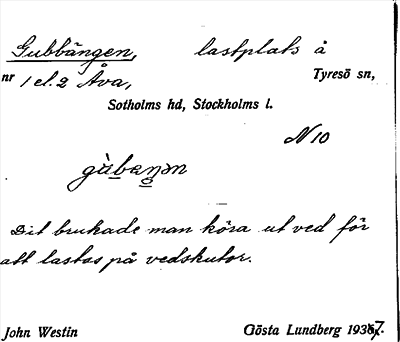 Gubbängen, lastplats å
nr 1 el. 2 Åva, Tyresö sn,
Sotholms hd, Stockholms l.
N 10
gùbæŋən
Dit brukade man köra ut ved för
att lastas på vedskutor.
John Westin Gösta Lundberg 1937.